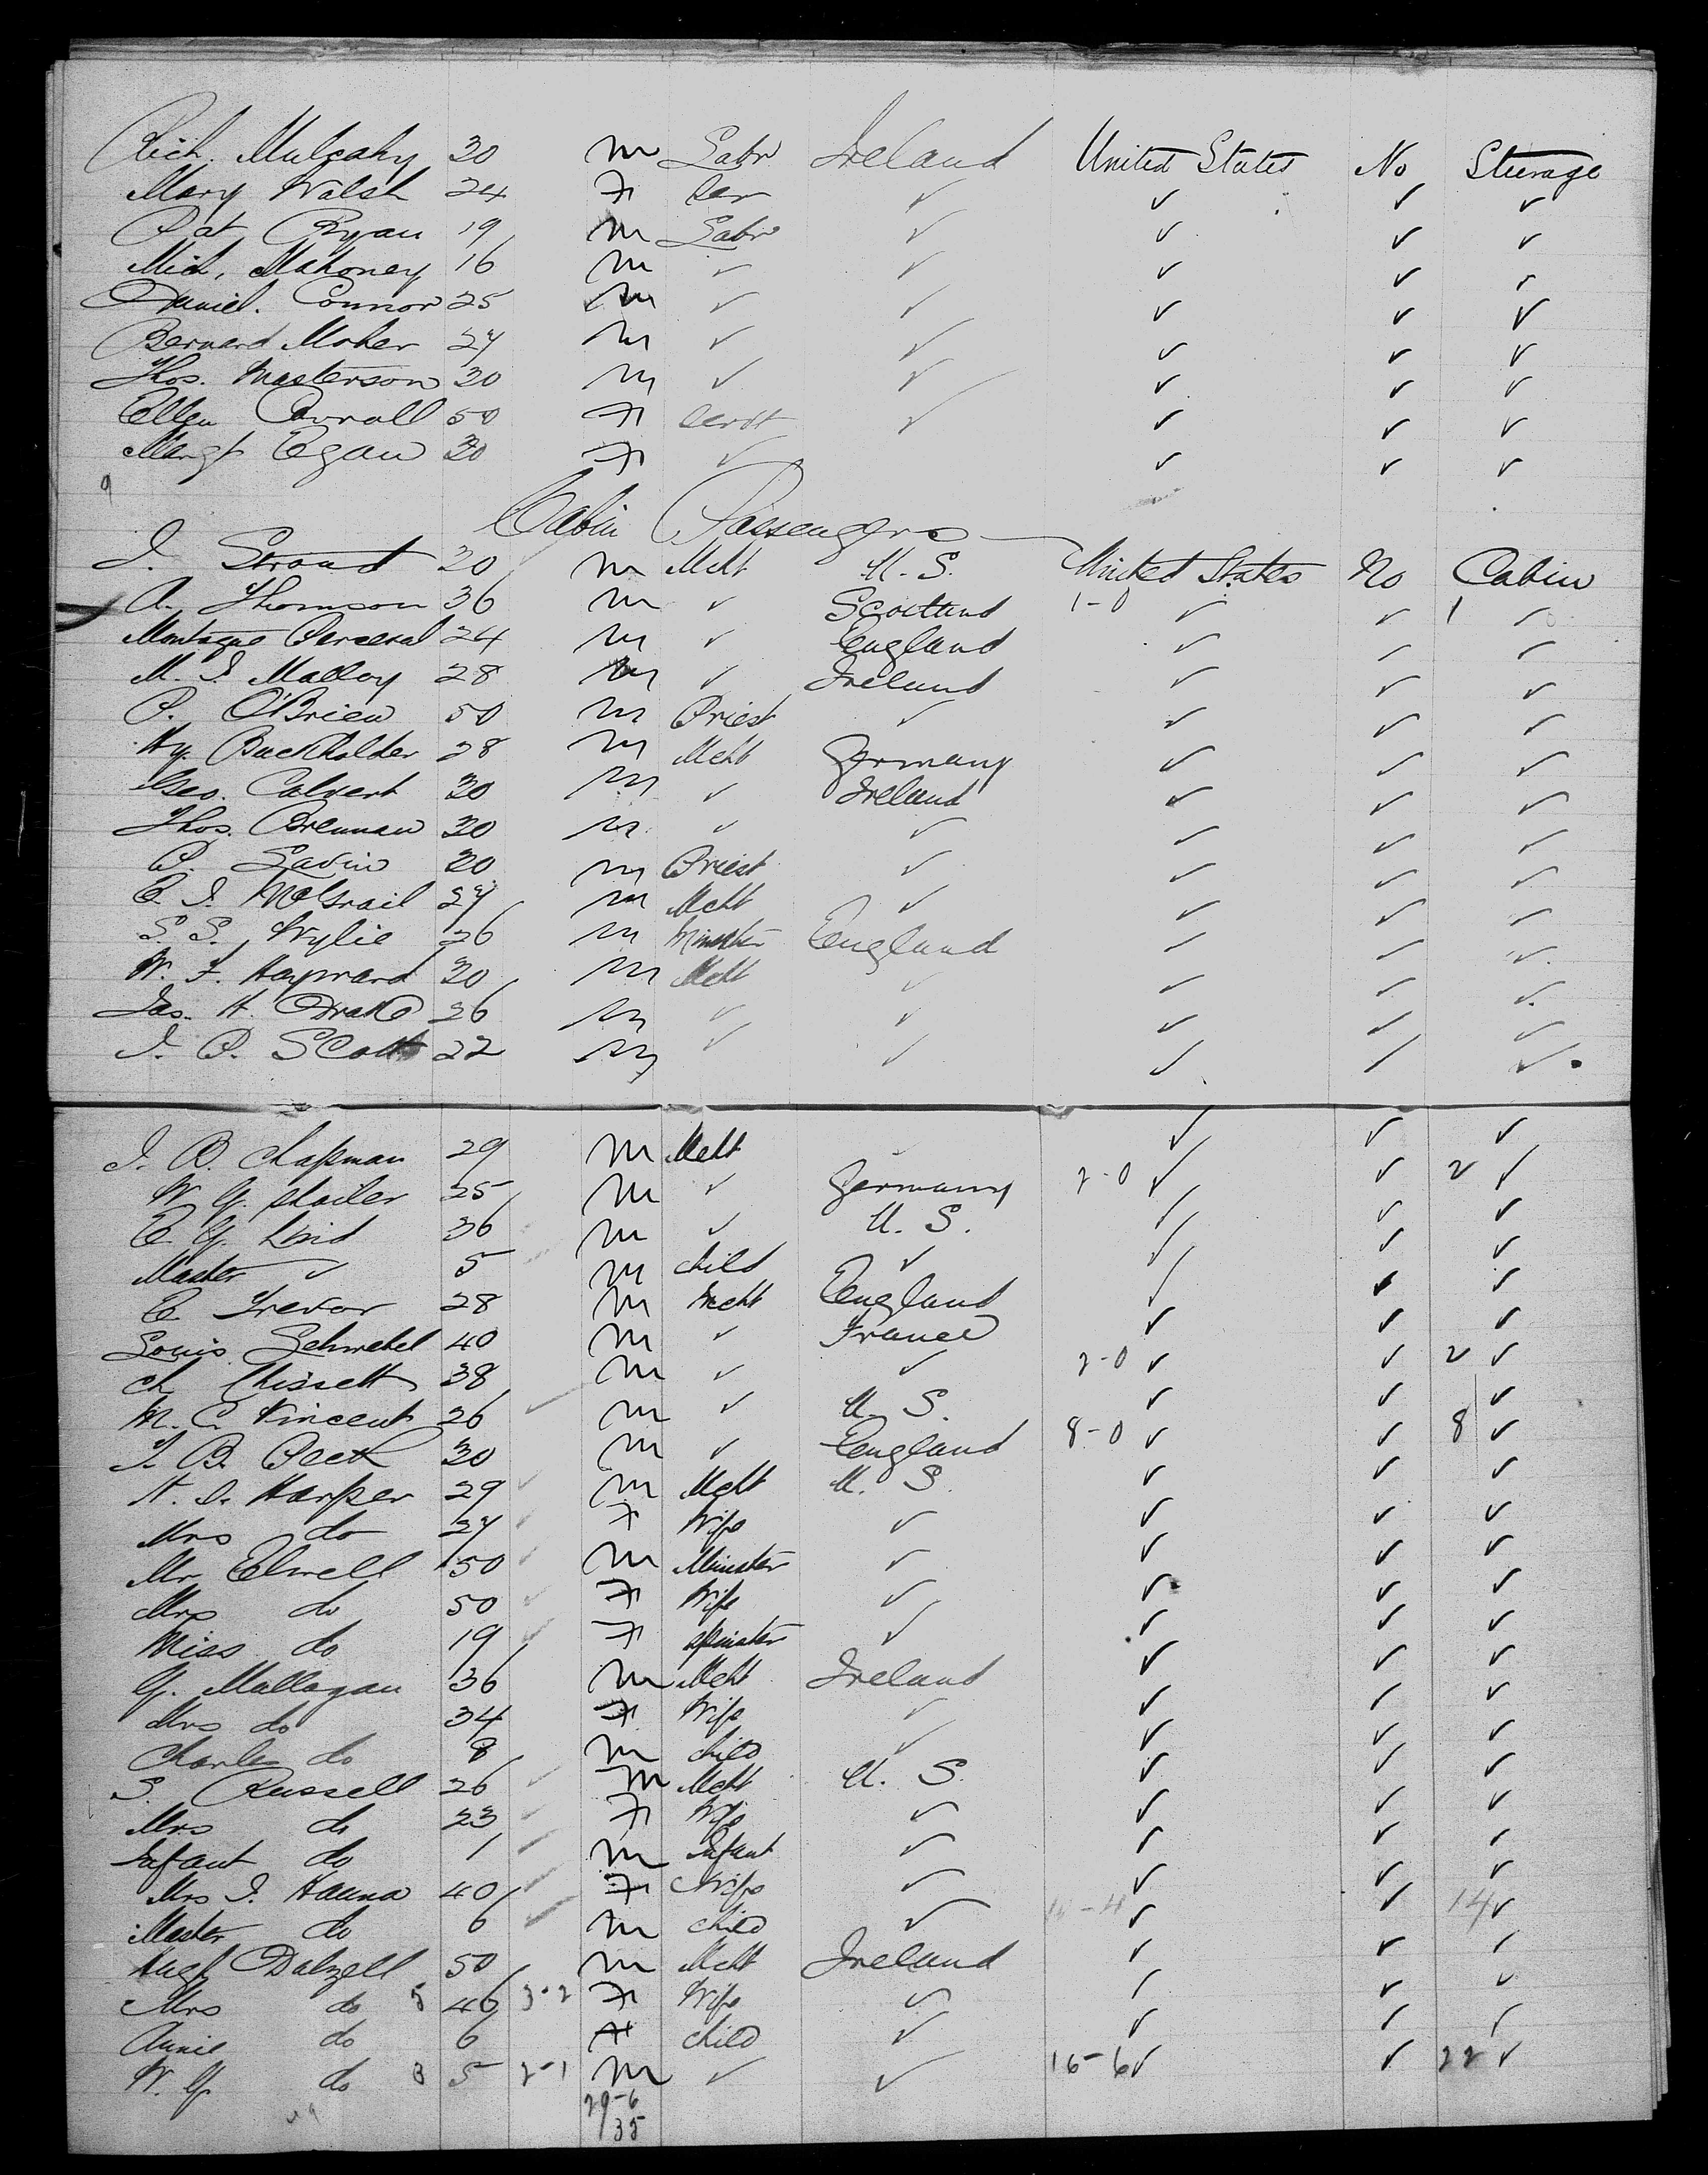 Rich. Mulcahy 30 m Labr Ireland United States No Steerage
Mary Walsh 24 F Ser ✓ ✓ ✓ ✓
Pat Ryan 19 m Labr ✓ ✓ ✓ ✓
Mich. Mahoney 16 m ✓ ✓ ✓ ✓ ✓
Daniel. Connor 25 m ✓ ✓ ✓ ✓ ✓
Bernard Maher 24 m ✓ ✓ ✓ ✓ ✓
Thos. Masterson 20 m ✓ ✓ ✓ ✓ ✓
Ellen Carroll 50 F servt ✓ ✓ ✓ ✓
Margt Egan 30 F ✓ ✓ ✓ ✓
9
Cabin Passengers
J. Stroud 30 m Mcht U. S. United States No Cabin
A. Thomson 36 m ✓ Scotland 1-0 ✓ ✓ 1 ✓
Montague Perceval 24 m ✓ England ✓ ✓ ✓
M. J. Malloy 28 m ✓ Ireland ✓ ✓ ✓
P. O'Brien 50 m Priest ✓ ✓ ✓ ✓
Hy. Buckholder 28 m Mcht Germany ✓ ✓ ✓
Geo. Calvert 30 m ✓ Ireland ✓ ✓ ✓
Thos. Brennan 30 m ✓ ✓ ✓ ✓ ✓
P. Lavin 30 m Priest ✓ ✓ ✓ ✓
E. J. McGrail 24 m Mcht ✓ ✓ ✓ ✓
S. S. Wylie 26 m Minister England ✓ ✓ ✓
W. F. Hayward 30 m Mcht ✓ ✓ ✓ ✓
Jas. H. Drake 26 m ✓ ✓ ✓ ✓ ✓
J. P. Scott 22 m ✓ ✓ ✓ ✓ ✓
J. B. Chapman 29 m Mcht ✓ ✓ ✓
W. G. 25 m ✓ Germany 2-0 ✓ ✓ 2 ✓
E. G. Lind 36 m ✓ U. S. ✓ ✓ ✓
Master ✓ 5 m child ✓ ✓ ✓ ✓
E. Trevor 28 m Mcht England ✓ ✓ ✓
Louis Schwebel 40 m ✓ France ✓ ✓ ✓
Ch 38 m ✓ ✓ 2-0 ✓ ✓ 2 ✓
M. C. Vincent 26 m ✓ U. S. ✓ ✓ ✓
J. B. Peet 30 m ✓ England 8-0 ✓ ✓ 8 ✓
H. J. Harper 29 m Mcht U. S. ✓ ✓ ✓
Mrs do 24 F Wife ✓ ✓ ✓ ✓
Mr Elwell 50 m Minister ✓ ✓ ✓ ✓
Mrs do 50 F Wife ✓ ✓ ✓ ✓
Miss do 19 F Spinster ✓ ✓ ✓ ✓
G. Mallagan 36 m Mcht Ireland ✓ ✓ ✓
Mrs do 34 F Wife ✓ ✓ ✓ ✓
Charles do 8 m child ✓ ✓ ✓ ✓
S. Russell 26 m Mcht U. S. ✓ ✓ ✓
Mrs do 23 F Wife ✓ ✓ ✓ ✓
Infant do 1 m Infant ✓ ✓ ✓ ✓
Mrs J. Hanna 40 F Wife ✓ ✓ ✓ ✓
Master do 6 m child ✓ ✓ ✓ 14 ✓
Hugh Dalzell 50 m Mcht Ireland ✓ ✓ ✓
Mrs do 5 46 3-2 F Wife ✓ ✓ ✓ ✓
Annie do 6 F child ✓ ✓ ✓ ✓
W. G. do 3 5 2-1 m ✓ ✓ 16-6 ✓ ✓ 22 ✓
29-6
35